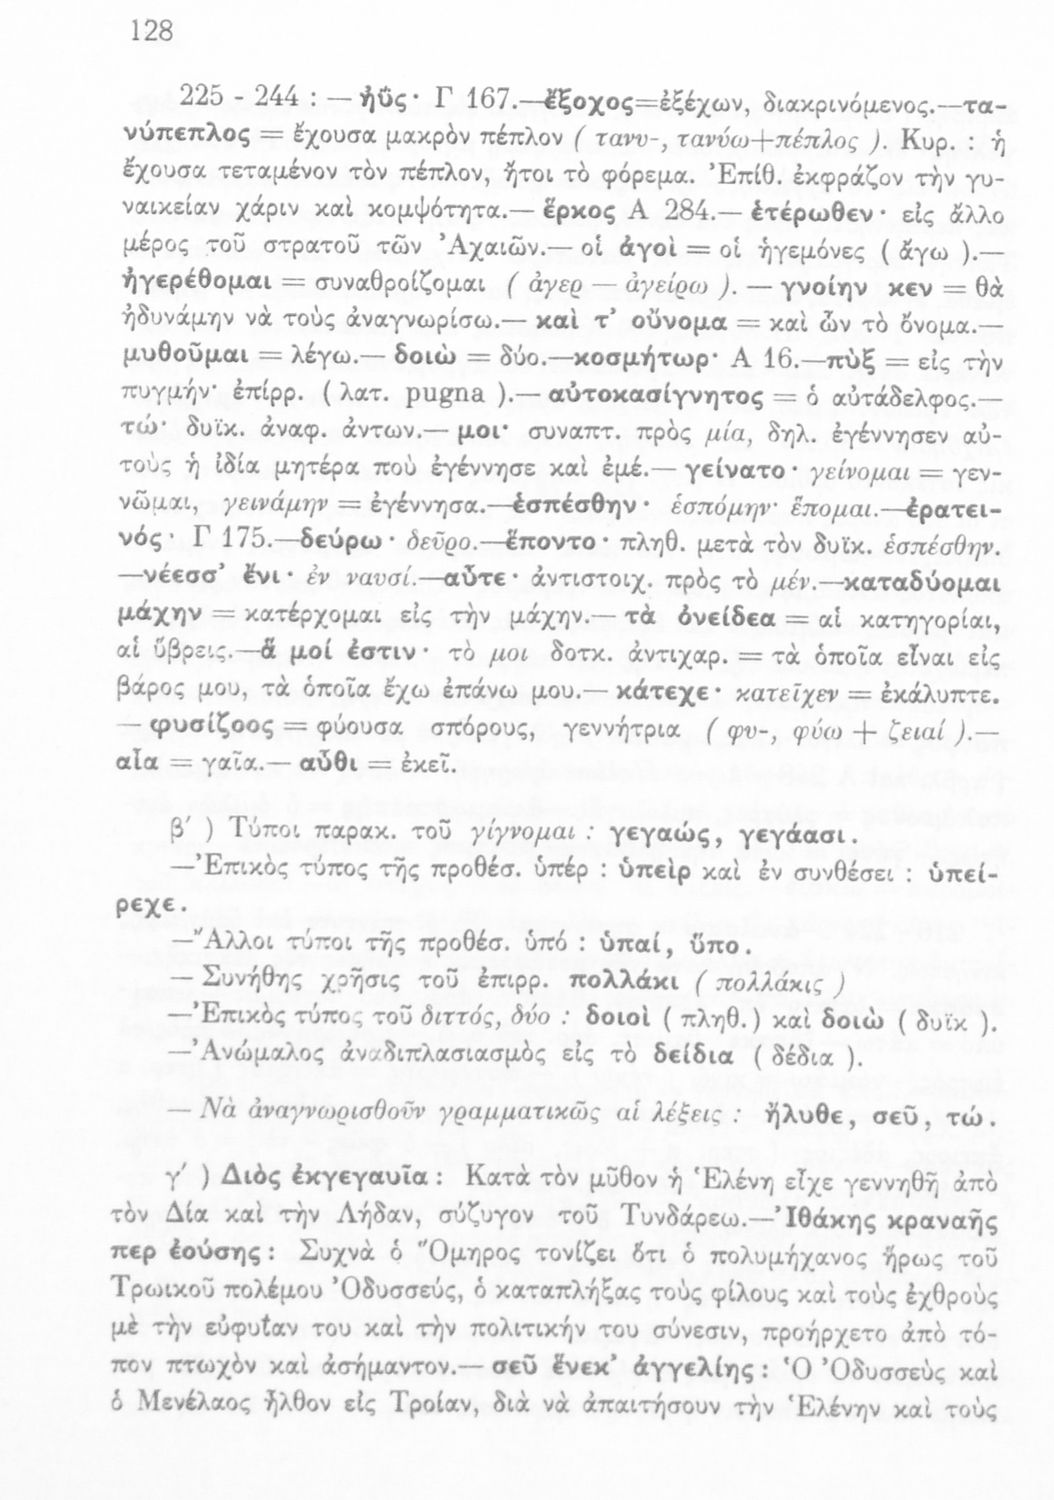 128
225 - 244 : — ἠΰς· Γ 167.—ἔξοχος=ἐξέχων, διακρινόμενος.—τα-
νύπεπλος = ἔχουσα μακρὸν πέπλον ( τανυ-, τανύω+πέπλος ). Κυρ. : ἡ
ἔχουσα τεταμένον τὸν πέπλον, ἤτοι τὸ φόρεμα. Ἐπίθ. ἐκφράζον τὴν γυ-
ναικείαν χάριν καὶ κομψότητα.— ἕρκος Α 284.— ἑτέρωθεν· εἰς ἄλλο
μέρος τοῦ στρατοῦ τῶν Ἀχαιῶν.— οἱ ἀγοὶ = οἱ ἡγεμόνες ( ἄγω ).—
ἠγερέθομαι = συναθροίζομαι ( ἀγερ — ἀγείρω ). — γνοίην κεν = θὰ
ἠδυνάμην νὰ τοὺς ἀναγνωρίσω.— καὶ τ' οὔνομα = καὶ ὧν τὸ ὄνομα.—
μυθοῦμαι = λέγω.— δοιὼ = δύο.—κοσμήτωρ· Α 16.—πὺξ = εἰς τὴν
πυγμήν· ἐπίρρ. ( λατ. pugna ).— αὐτοκασίγνητος = ὁ αὐτάδελφος.—
τώ· δυϊκ. ἀναφ. ἀντων.— μοι· συναπτ. πρὸς μία, δηλ. ἐγέννησεν αὐ-
τοὺς ἡ ἰδία μητέρα ποὺ ἐγέννησε καὶ ἐμέ.— γείνατο· γείνομαι = γεν-
νῶμαι, γεινάμην = ἐγέννησα.—ἑσπέσθην· ἑσπόμην· ἕπομαι.—ἐρατει-
νός· Γ 175.—δεύρω· δεῦρο.—ἕποντο· πληθ. μετὰ τὸν δυϊκ. ἑσπέσθην.
—νέεσσ' ἔνι· ἐν ναυσί.—αὖτε· ἀντιστοιχ. πρὸς τὸ μέν.—καταδύομαι
μάχην = κατέρχομαι εἰς τὴν μάχην.— τὰ ὀνείδεα = αἱ κατηγορίαι,
αἱ ὕβρεις.—ἅ μοί ἐστιν· τὸ μοι δοτκ. ἀντιχαρ. = τὰ ὁποῖα εἶναι εἰς
βάρος μου, τὰ ὁποῖα ἔχω ἐπάνω μου.— κάτεχε· κατεῖχεν = ἐκάλυπτε.
— φυσίζοος = φύουσα σπόρους, γεννήτρια ( φυ-, φύω + ζειαί ).—
αἶα = γαῖα.— αὖθι = ἐκεῖ.
β΄ ) Τύποι παρακ. τοῦ γίγνομαι : γεγαώς, γεγάασι.
—Ἐπικὸς τύπος τῆς προθέσ. ὑπέρ : ὑπεὶρ καὶ ἐν συνθέσει : ὑπεί-
ρεχε.
—Ἄλλοι τύποι τῆς προθέσ. ὑπό : ὑπαί, ὕπο.
— Συνήθης χρῆσις τοῦ ἐπιρρ. πολλάκι ( πολλάκις )
—Ἐπικὸς τύπος τοῦ διττός, δύο : δοιοὶ ( πληθ.) καὶ δοιὼ ( δυϊκ ).
—Ἀνώμαλος ἀναδιπλασιασμὸς εἰς τὸ δείδια ( δέδια ).
— Νὰ ἀναγνωρισθοῦν γραμματικῶς αἱ λέξεις : ἤλυθε, σεῦ, τώ.
γ΄ ) Διὸς ἐκγεγαυῖα : Κατὰ τὸν μῦθον ἡ Ἑλένη εἶχε γεννηθῆ ἀπὸ
τὸν Δία καὶ τὴν Λήδαν, σύζυγον τοῦ Τυνδάρεω.—Ἰθάκης κραναῆς
περ ἐούσης : Συχνὰ ὁ Ὅμηρος τονίζει ὅτι ὁ πολυμήχανος ἥρως τοῦ
Τρωικοῦ πολέμου Ὀδυσσεύς, ὁ καταπλήξας τοὺς φίλους καὶ τοὺς ἐχθροὺς
μὲ τὴν εὐφυΐαν του καὶ τὴν πολιτικήν του σύνεσιν, προήρχετο ἀπὸ τό-
πον πτωχὸν καὶ ἀσήμαντον.— σεῦ ἕνεκ' ἀγγελίης : Ὁ Ὀδυσσεὺς καὶ
ὁ Μενέλαος ἦλθον εἰς Τροίαν, διὰ νὰ ἀπαιτήσουν τὴν Ἑλένην καὶ τοὺς